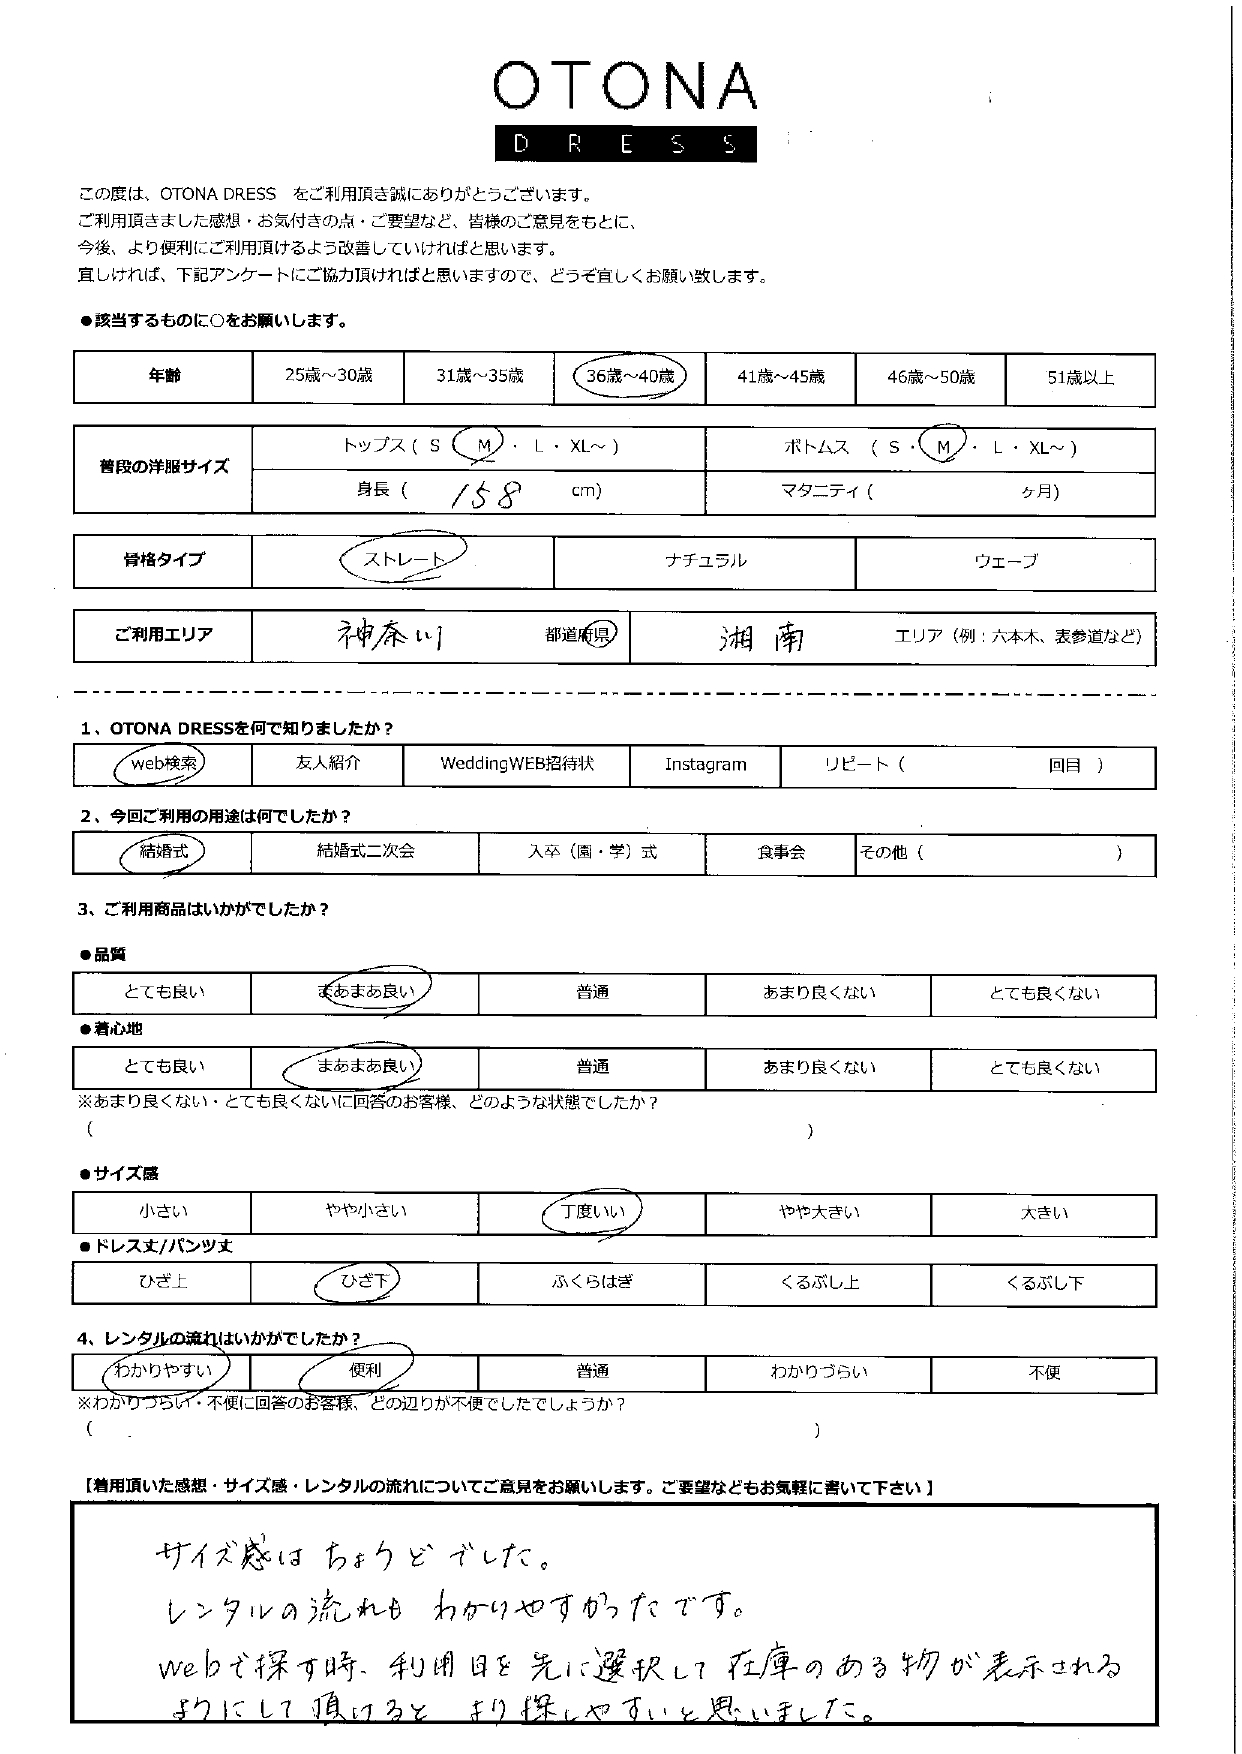 OTONA
DRESS
この度は、OTONA DRESS をご利用頂き誠にありがとうございます。
ご利用頂きました感想・お気付きの点・ご要望など、皆様のご意見をもとに、
今後、より便利にご利用頂けるよう改善していければと思います。
宜しければ、下記アンケートにご協力頂ければと思いますので、どうぞ宜しくお願い致します。
●該当するものに○をお願いします。
年齢 25歳～30歳 31歳～35歳 36歳～40歳 41歳～45歳 46歳～50歳 51歳以上
普段の洋服サイズ トップス ( S ・ M ・ L ・ XL～ ) ボトムス ( S ・ M ・ L ・ XL～ )
身長 ( 158 cm) マタニティ ( ヶ月)
骨格タイプ ストレート ナチュラル ウェーブ
ご利用エリア 神奈川 都道府県 湘南 エリア（例：六本木、表参道など）
1、OTONA DRESSを何で知りましたか？
web検索 友人紹介 WeddingWEB招待状 Instagram リピート ( 回目 )
2、今回ご利用の用途は何でしたか？
結婚式 結婚式二次会 入卒（園・学）式 食事会 その他 ( )
3、ご利用商品はいかがでしたか？
●品質
とても良い まあまあ良い 普通 あまり良くない とても良くない
●着心地
とても良い まあまあ良い 普通 あまり良くない とても良くない
※あまり良くない・とても良くないに回答のお客様、どのような状態でしたか？
( )
●サイズ感
小さい やや小さい 丁度いい やや大きい 大きい
●ドレス丈/パンツ丈
ひざ上 ひざ下 ふくらはぎ くるぶし上 くるぶし下
4、レンタルの流れはいかがでしたか？
わかりやすい 便利 普通 わかりづらい 不便
※わかりづらい・不便に回答のお客様、どの辺りが不便でしたでしょうか？
( )
【着用頂いた感想・サイズ感・レンタルの流れについてご意見をお願いします。ご要望などもお気軽に書いて下さい】
サイズ感は ちょうど でした。
レンタルの流れも わかりやすかったです。
webで探す時、利用日を 先に選択して 在庫のある物が表示される
ようにして頂けると より探しやすいと思いました。